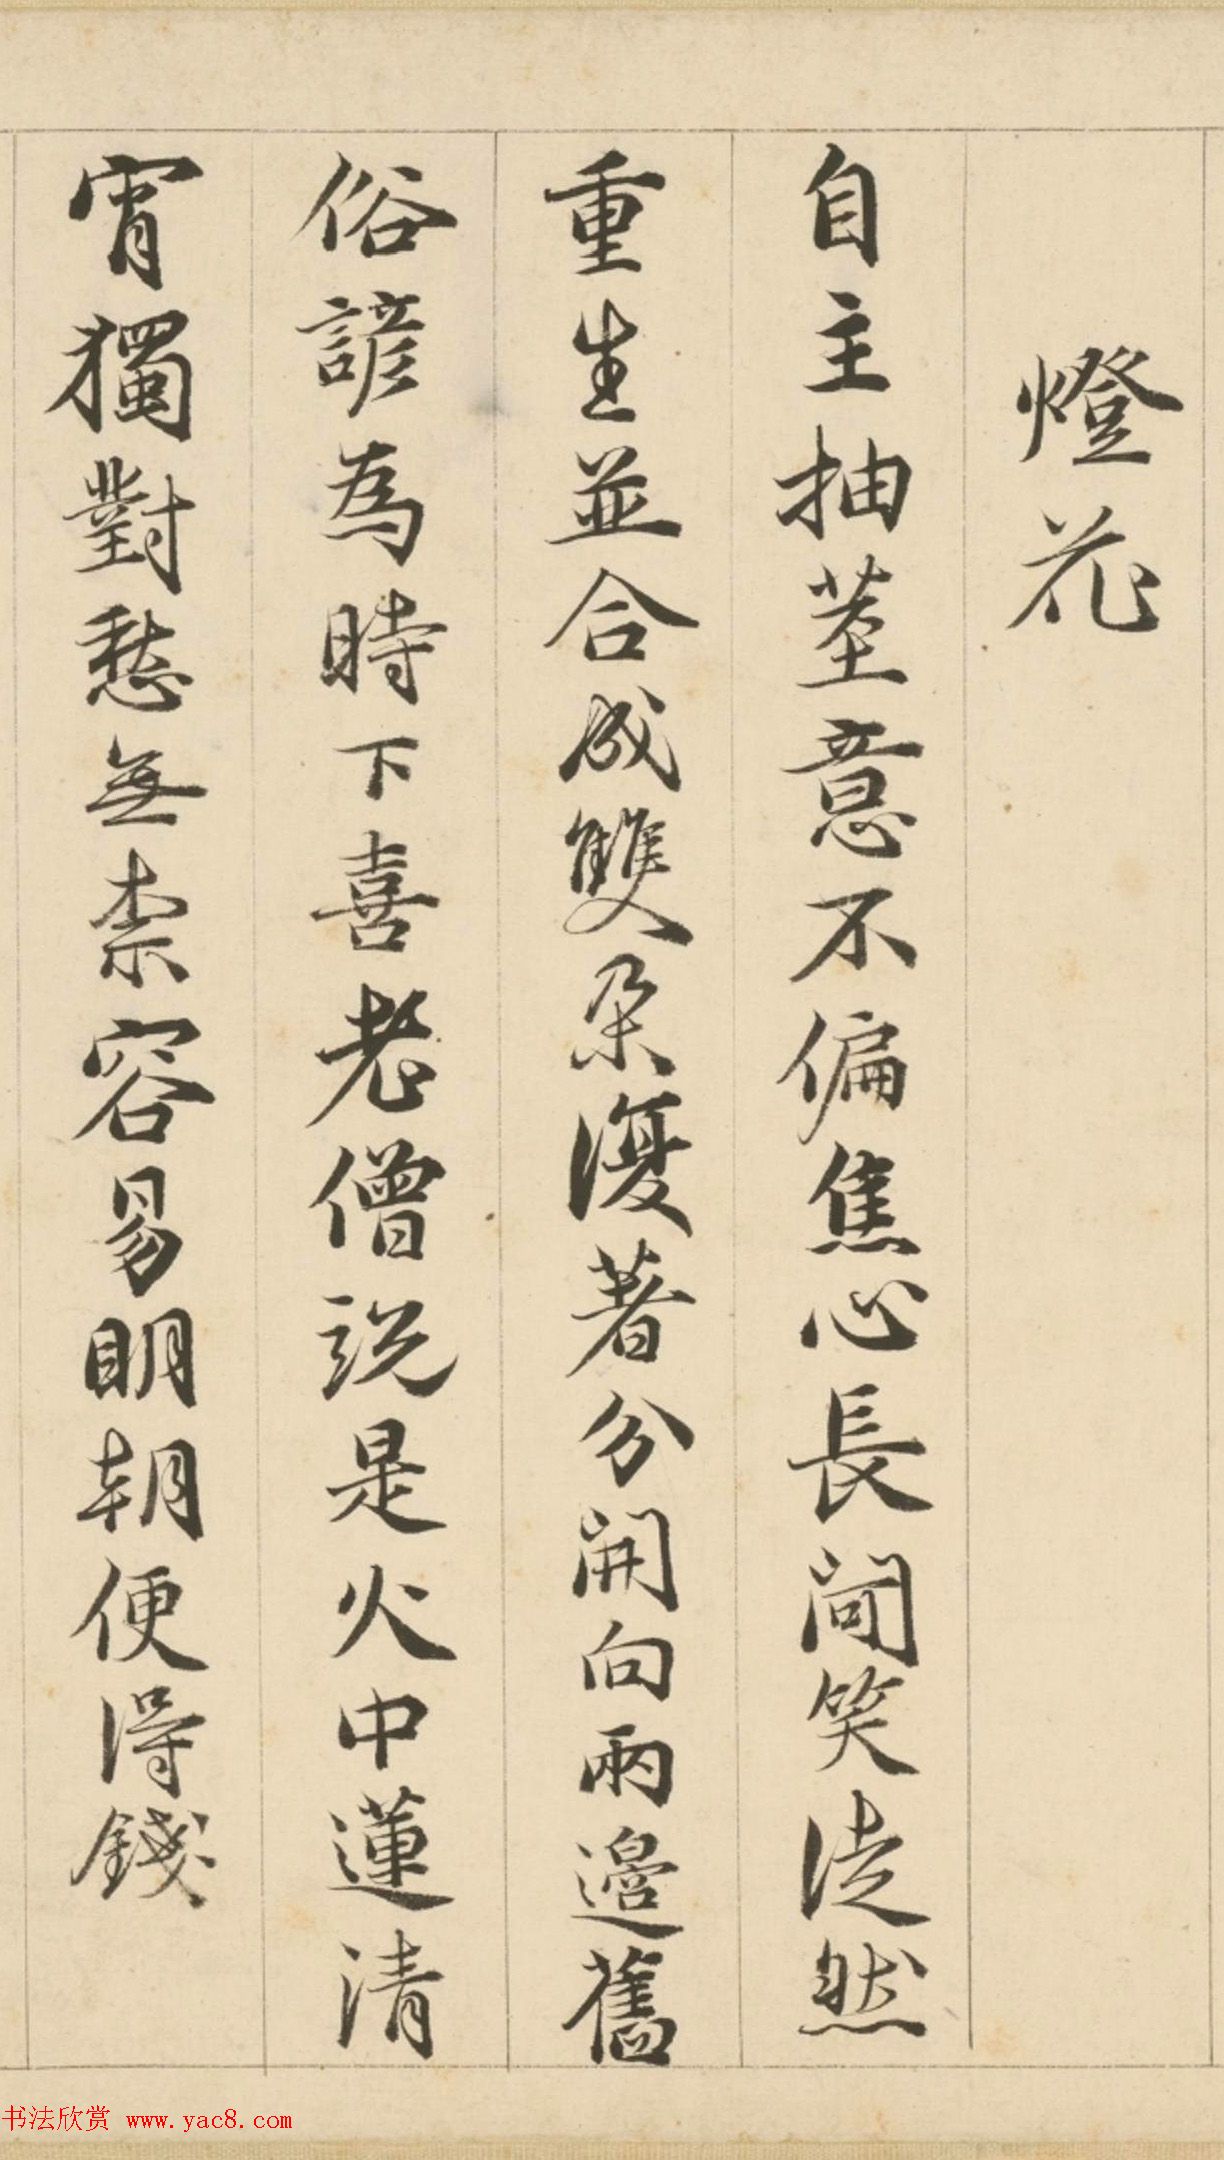 燈花
自主抽莖意不偏焦心長閒笑徒然
重生並合成雙朵復著分開向兩邊舊
俗諺為時下喜老僧說是火中蓮清
宵獨對愁無柰容易明朝便得錢
书法欣赏 www.yac8.com